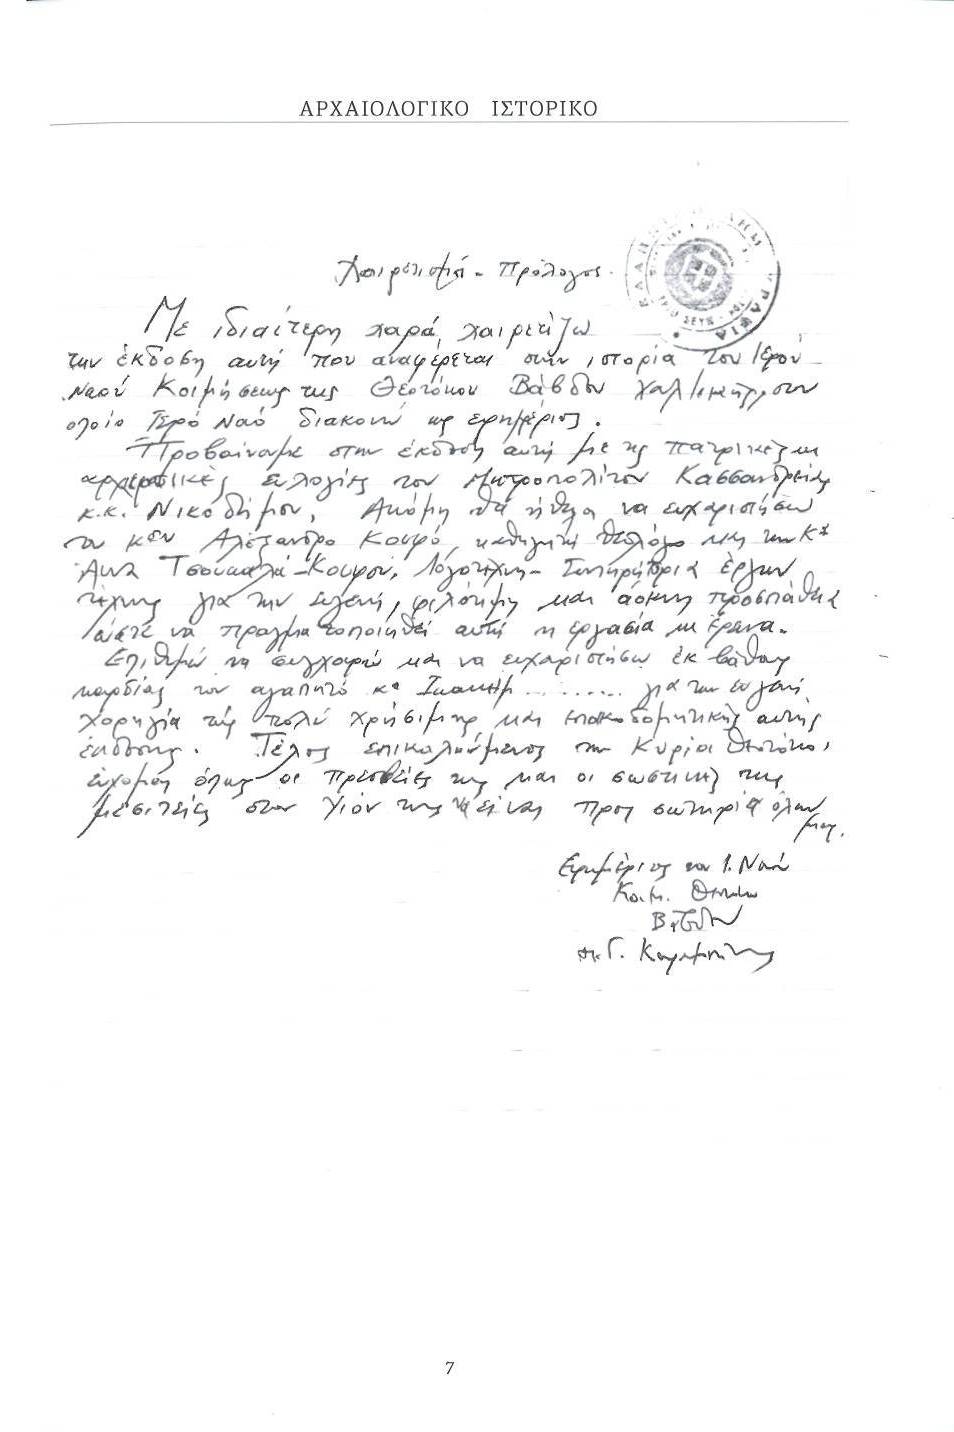 ΑΡΧΑΙΟΛΟΓΙΚΟ ΙΣΤΟΡΙΚΟ
Χαιρετισμό - Πρόλογος.
Με ιδιαίτερη χαρά, χαιρετίζω
την έκδοση αυτή που αναφέρεται στην ιστορία του Ιερού
Ναού Κοιμήσεως της Θεοτόκου Βάβδου Χαλκιδικής, στον
οποίο Ιερό Ναό διακονώ ως εφημέριος.
Προβαίνομε στην έκδοση αυτή με τις πατρικές και
αρχιερατικές ευλογίες του Μητροπολίτου Κασσανδρείας
κ.κ. Νικοδήμου, Ακόμη θα ήθελα να ευχαριστήσω
τον κον Αλέξανδρο Κουφό, καθηγητή θεολόγο και την Κα
Άννα Τσουκαλά-Κουφού, Λογοτέχνη - Συντηρήτρια έργων
τέχνης για την ευγενή, φιλότιμη και άοκνη προσπάθεια
ώστε να πραγματοποιηθεί αυτή η εργασία και έρευνα.
Επιθυμώ να συγχαρώ και να ευχαριστήσω εκ βάθους
καρδίας τον αγαπητό κο Ιωακείμ ......... για την ευγενή
χορηγία της πολύ χρήσιμης και εποικοδομητικής αυτής
έκδοσης. Τέλος επικαλούμενος την Κυρία Θεοτόκο,
εύχομαι όπως οι πρεσβείες της και οι σωστικές της
μεσιτείες στον Υιόν της να είναι προς σωτηρία όλων
μας.
Εφημέριος του Ι. Ναού
Κοιμ. Θεοτόκου
Βάβδου
π. Γ.
7